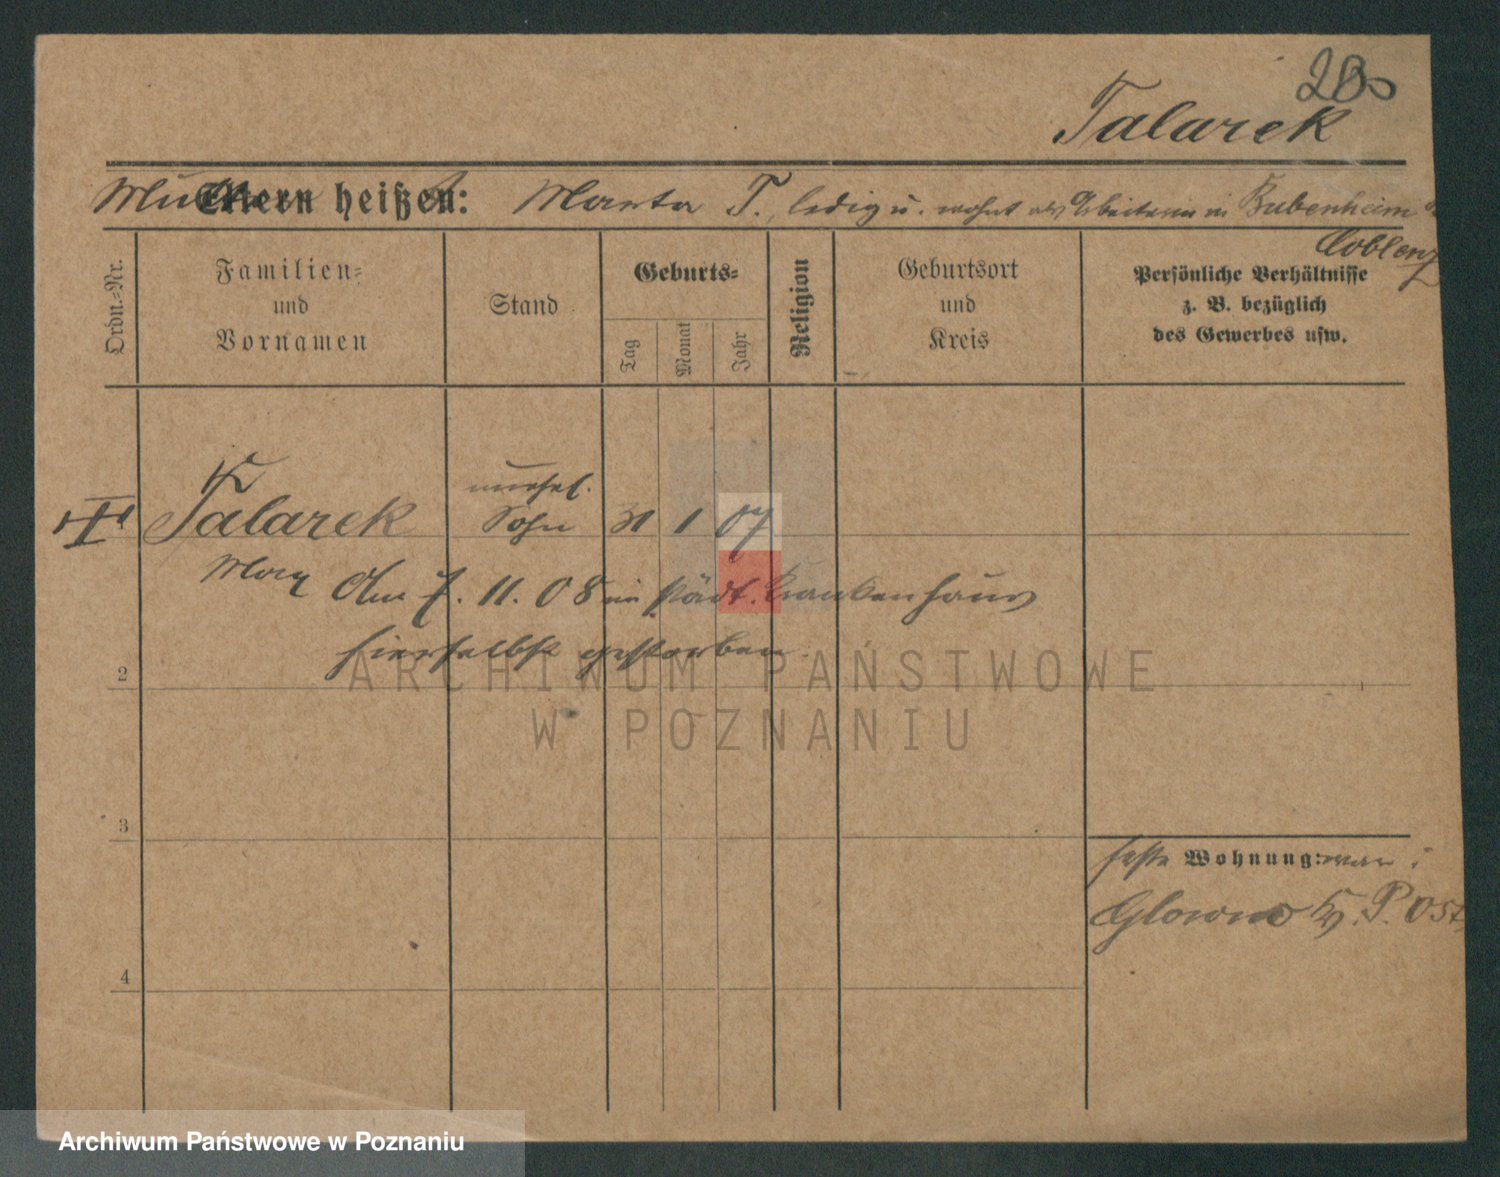 280
Talarek
Mutter Eltern heißen: Marta T., ledig u. wohnt als Arbeiterin in Bubenheim
Coblenz
Ordn.-Nr.
Familien-
und
Vornamen
Stand
Geburts-
Tag
Monat
Jahr
Religion
Geburtsort
und
Kreis
Persönliche Verhältnisse
z. B. bezüglich
des Gewerbes usw.
1 Talarek unehel. Sohn 31 1 07
Max
Am 7. 11. 08 im städt. Krankenhaus
hierselbst gestorben.
2
3
4
Wohnung: war:
Glowno P. Ost
ARCHIWUM PAŃSTWOWE
W POZNANIU
Archiwum Państwowe w Poznaniu